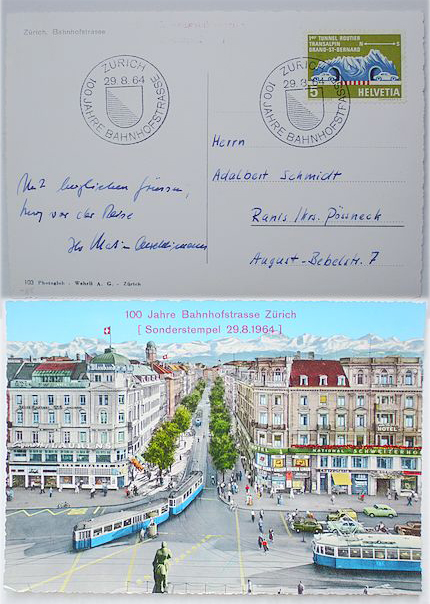 Zürich, Bahnhofstrasse
ZÜRICH
29.8.64
100 JAHRE BAHNHOFSTRASSE
1er TUNNEL ROUTIER
TRANSALPIN N S
GRAND-ST-BERNARD
5 HELVETIA
ZÜRICH
29.8.64
100 JAHRE BAHNHOFSTRASSE
Herrn
Adalbert Schmidt
Ranis Krs. Pössneck
August-Bebelstr. 7
Mit herzlichen Grüssen,
kurz vor der Reise
Ihr
103 Photogloh - Wehrli A. G. - Zürich
100 Jahre Bahnhofstrasse Zürich
[ Sonderstempel 29.8.1964 ]
HOTEL
NATIONAL SCHWEIZERHO